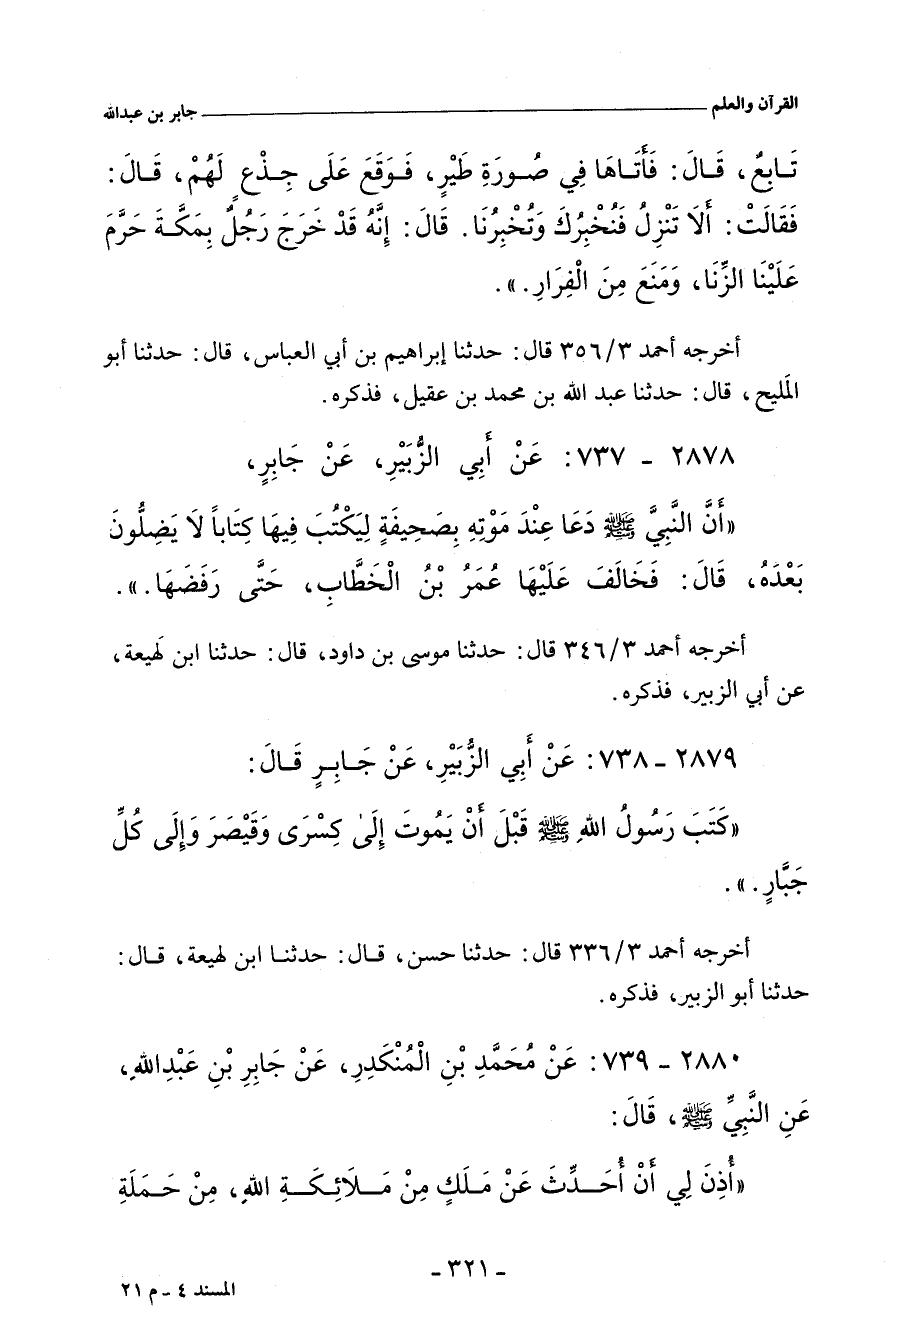 القرآن والعلم ــــــــــــــــــــ جابر بن عبدالله
تَابِعٌ، قَالَ: فَأَتَاهَا فِي صُورَةِ طَيْرٍ، فَوَقَعَ عَلَى جِذْعٍ لَهُمْ، قَالَ:
فَقَالَتْ: أَلَا تَنْزِلُ فَنُخْبِرُكَ وَتُخْبِرُنَا. قَالَ: إِنَّهُ قَدْ خَرَجَ رَجُلٌ بِمَكَّةَ حَرَّمَ
عَلَيْنَا الزِّنَا، وَمَنَعَ مِنَ الْفِرَارِ.».
أخرجه أحمد ٣٥٦/٣ قال: حدثنا إبراهيم بن أبي العباس، قال: حدثنا أبو
المَليح، قال: حدثنا عبد الله بن محمد بن عقيل، فذكره.
٢٨٧٨ - ٧٣٧: عَنْ أَبِي الزُّبَيْرِ، عَنْ جَابِرٍ،
«أَنَّ النَّبِيَّ ﷺ دَعَا عِنْدَ مَوْتِهِ بِصَحِيفَةٍ لِيَكْتُبَ فِيهَا كِتَاباً لَا يَضِلُّونَ
بَعْدَهُ، قَالَ: فَخَالَفَ عَلَيْهَا عُمَرُ بْنُ الْخَطَّابِ، حَتَّى رَفَضَهَا.».
أخرجه أحمد ٣٤٦/٣ قال: حدثنا موسى بن داود، قال: حدثنا ابن لَهيعة،
عن أبي الزبير، فذكره.
٢٨٧٩ - ٧٣٨: عَنْ أَبِي الزُّبَيْرِ، عَنْ جَابِرٍ قَالَ:
«كَتَبَ رَسُولُ اللهِ ﷺ قَبْلَ أَنْ يَمُوتَ إِلَىٰ كِسْرَى وَقَيْصَرَ وَإِلَى كُلِّ
جَبَّارٍ.».
أخرجه أحمد ٣٣٦/٣ قال: حدثنا حسن، قال: حدثنا ابن لهيعة، قال:
حدثنا أبو الزبير، فذكره.
٢٨٨٠ - ٧٣٩: عَنْ مُحَمَّدِ بْنِ الْمُنْكَدِرِ، عَنْ جَابِرِ بْنِ عَبْدِاللهِ،
عَنِ النَّبِيِّ ﷺ، قَالَ:
«أُذِنَ لِي أَنْ أُحَدِّثَ عَنْ مَلَكٍ مِنْ مَلَائِكَةِ اللهِ، مِنْ حَمَلَةِ
- ٣٢١ -
المسند ٤ - م ٢١